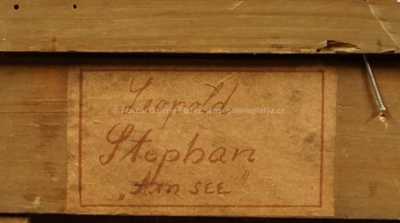 Leopold
Stephan
„Am See"